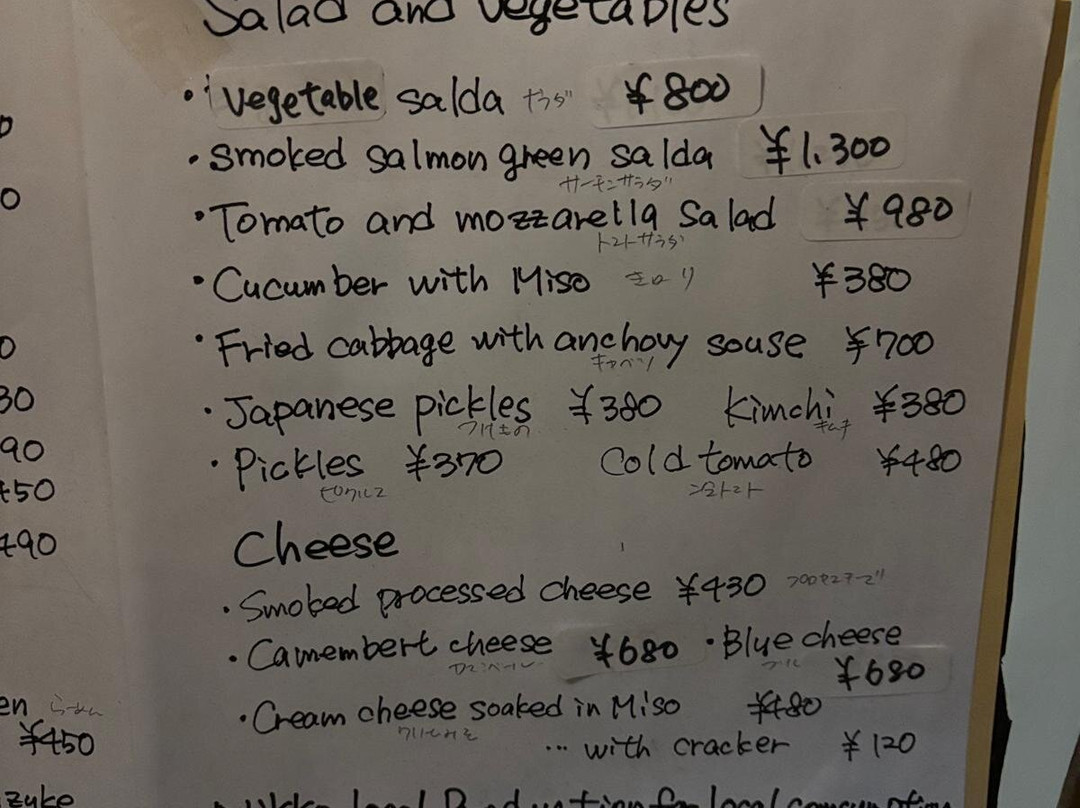 Salad and vegetables
・Vegetable salda サラダ ¥800
・Smoked salmon green salda ¥1,300
サーモンサラダ
・Tomato and mozzarella Salad ¥980
トマトサラダ
・Cucumber with Miso きゅうり ¥380
・Fried cabbage with anchovy souse ¥700
キャベツ
・Japanese pickles ¥380 Kimchi ¥380
つけもの キムチ
・Pickles ¥370 Cold tomato ¥480
ピクルス
Cheese
・Smoked processed cheese ¥430
・Camembert cheese ¥680 ・Blue cheese
¥680
・Cream cheese soaked in Miso ¥480
... with cracker ¥120
30
90
450
490
en らーめん
¥450
zuke